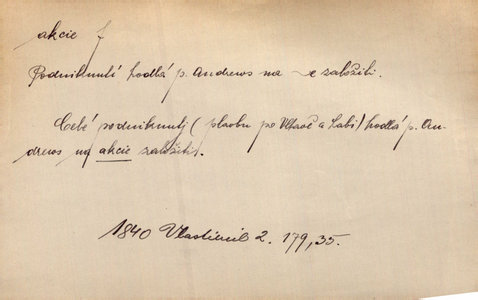 akcie f
Podniknutí hodlá p. Andrews na ~e založiti.
Celé podniknutj (plavbu po Vltavě a Labi) hodlá p. An-
drews na akcie založiti.
1840 Vlastimil 2. 179, 35.